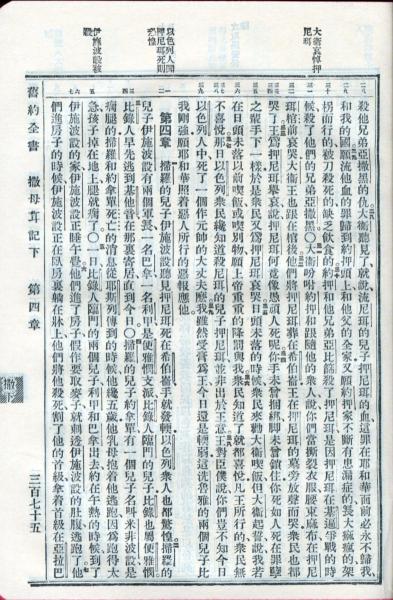 大衛哀悼押
尼珥
以色列人聞
押尼珥死則
驚惶
伊施波設被
殺
殺他兄弟亞撒黑的仇大衛聽見了就說流尼珥的兒子押尼珥的血這罪在耶和華面前必永不歸我
和我的國願流他血的罪歸到約押頭上和他父的全家又願約押家不斷有患漏症的長大痲瘋的架
拐而行的被刀殺死的缺乏飲食的約押和他兄弟亞比篩殺了押尼珥是因押尼珥在基遍爭戰的時
候殺了他們的兄弟亞撒黑〇大衛吩咐約押和跟隨他的衆人說你們當撕裂衣服腰束麻布在押尼
珥棺前哀哭大衛王也跟在棺後他們將押尼珥葬在希伯崙王在押尼珥的墓旁放聲而哭衆民也都
哭了王爲押尼珥舉哀說押尼珥何竟像愚頑人死呢你手未曾捆綁脚未曾鎖住你死如人死在罪孽
之輩手下一樣於是衆民又爲押尼珥哀哭日頭未落的時候衆民來勸大衛喫飯但大衛起誓說我若
在日頭未落以前喫飯或喫別物願上帝重重的降罰與我衆民知道了就都喜悅凡王所行的衆民無
不喜悅那日以色列衆民纔知道殺尼珥的兒子押尼珥並非出於王意王對臣僕說你們豈不知今日
以色列人中死了一個作元帥的大丈夫麼我雖然受膏爲王今日還是輭弱這洗魯雅的兩個兒子比
我剛強願耶和華照着惡人所行的惡報應他
第四章 掃羅的兒子伊施波設聽見押尼珥死在希伯崙手就發輭以色列衆人也都驚惶掃羅的
兒子伊施波設有兩個軍長一名巴拿一名利甲是便雅憫支派比錄人臨門的兒子比錄也屬便雅憫
比錄人早先逃到基他音在那裏寄居直到今日〇掃羅的兒子約拿單有一個兒子名叫米非波設是
瘸腿的掃羅和約拿單死亡的消息從耶斯列傳到的時候他纔五歲他乳母抱着他逃跑因爲跑得太
急孩子掉在地上腿就瘸了〇一日比錄人臨門的兩個兒子利甲和巴拿出去約在午熱的時候到了
伊施波設的家伊施波設正睡午覺他們進了房子假作要取麥子就刺透伊施波設的肚腹逃跑了他
們進房子的時候伊施波設正在臥房裏躺在牀上他們將他殺死割了他的首級拿着首級在亞拉巴
舊約全書 撒母耳記下 第四章 三百七十五